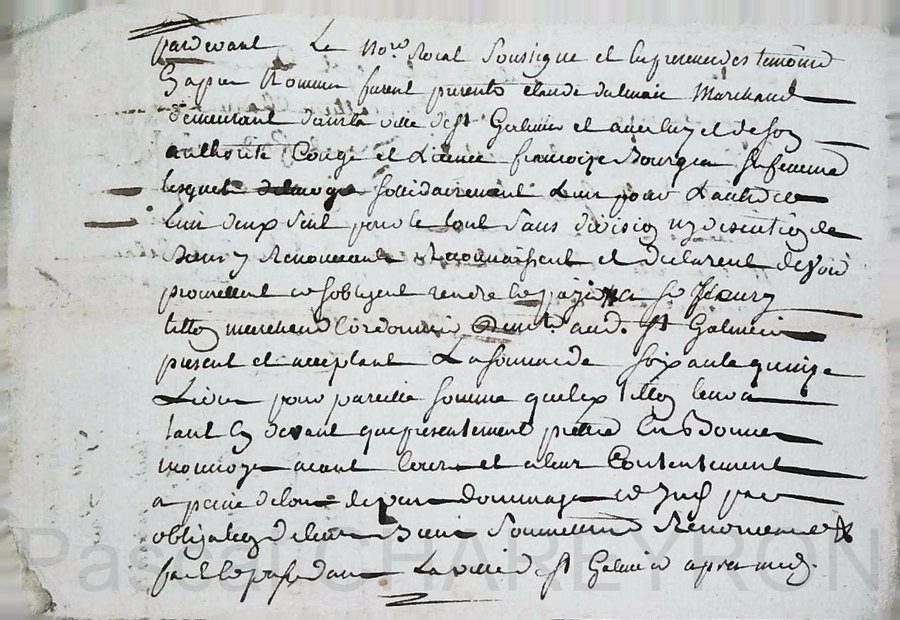 pardevant Le no.re Roial soussigne et En presence des temoins
Cy apres Nommes furent presents claude dulmais Marchand
demeurant dans la ville de st Galmier et avec luy et de son
authorite Conge et Licence francoize Bourgea sa femme
lesquels solidairement L'un pour L'autre
L'un deux seul pour le tout sans division ny discution de
Biens y Renonceant Reconnaissent et declarent devoir
promettent et sobligent rendre et payer a sr fleury
tillon marchand Cordonnier demt. aud. st Galmier
present et acceptant La somme de soixante quinze
Livres pour pareille somme que led. tillon leur a
tant Cy devant que presentement prette En Bonne
monnoye aiant Cours et a leur Contentement
a peine de tous depens dommages et Int. par
obligation de leurs Biens soumissions Renonceant
fait et passe dans La ville de st Galmier apres midy.
Pascal CHAREYRON